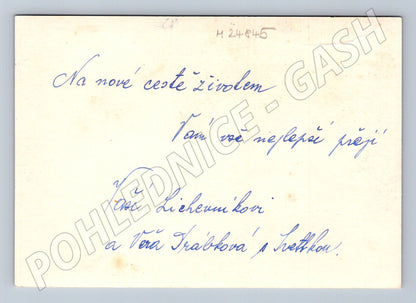 M 24845
Na nové cestě životem
Vám vše nejlepší přejí
Vaši Lichovníkovi
a Věra Drábková s Světlkou.
POHLEDNICE - GASH